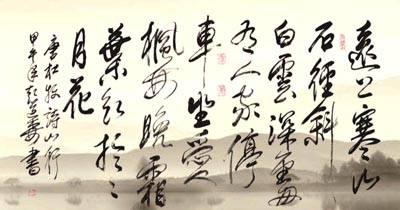 遠上寒山
石徑斜
白雲深處
有人家停
車坐愛
楓林晚霜
葉紅於二
月花
唐杜牧詩山行
甲午年書